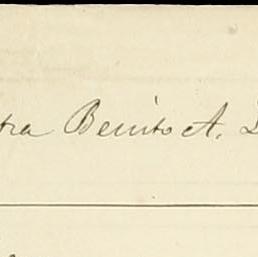 tra Benito A.